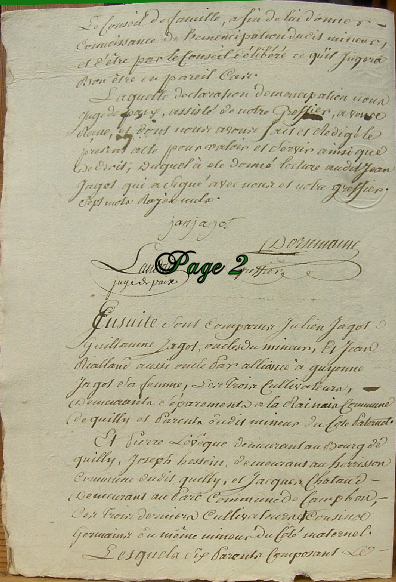 Le Conseil de famille, afin de lui donner
Connoissance de l'emencipation dudit mineur,
et d'être par le Conseil délibéré ce qu'il jugera
Bon être en pareil Cas.
Laquelle déclaration d'emancipation nous
juge de paix, assisté de notre Greffier, avons
et dont nous avons fait et rédigé le
present acte pour valoir et servir ainsi que
de droit, Duquel a été donné lecture audit Jean
Jagot qui a signé avec nous et notre greffier.
Sept mots rayés nuls.
jan jagot
juge de paix
greffier
Page 2
Ensuite sont comparus Julien Jagot
Guillaume Jagot, oncles du mineur, Et Jean
aussi oncle par alliance à
Jagot sa femme, Les trois Cultivateurs,
Demeurants séparément à la Commune
de quilly et Parents dudit mineur du Coté Paternel.
Et Pierre Lévêque demeurant au Bourg de
quilly, Joseph demeurant au
Commune dudit quilly, et Jacques
Demeurant au Commune de Campbon,
Les trois derniers Cultivateurs Cousins
Germains du même mineur du Côté maternel.
Lesquels six Parents Composant Le